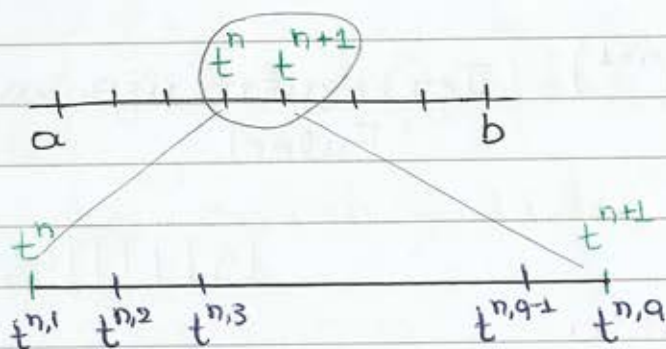 t^n t^{n+1}
a b
t^n t^{n+1}
t^{n,1} t^{n,2} t^{n,3} t^{n,q-1} t^{n,q}